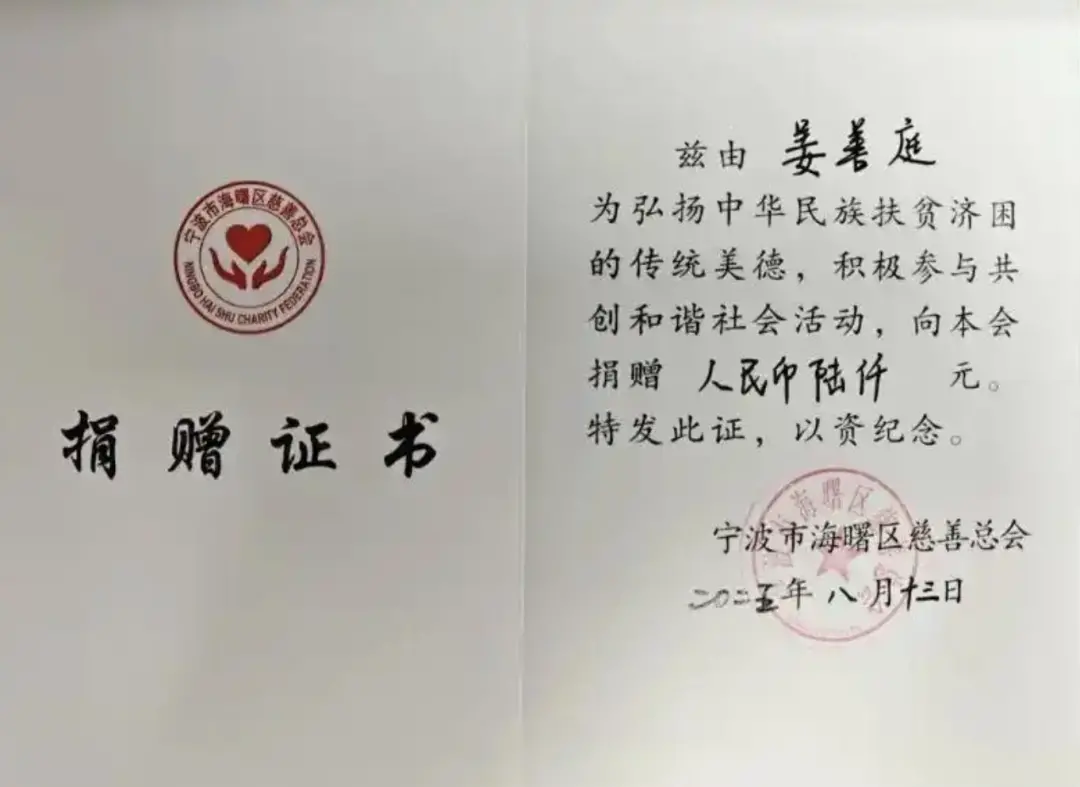 宁波市海曙区慈善总会
NINGBO HAI SHU CHARITY FEDERATION
捐赠证书
兹由 姜善庭
为弘扬中华民族扶贫济困
的传统美德，积极参与共
创和谐社会活动，向本会
捐赠 人民币陆仟 元。
特发此证，以资纪念。
海曙区
宁波市海曙区慈善总会
二〇二五年八月十三日